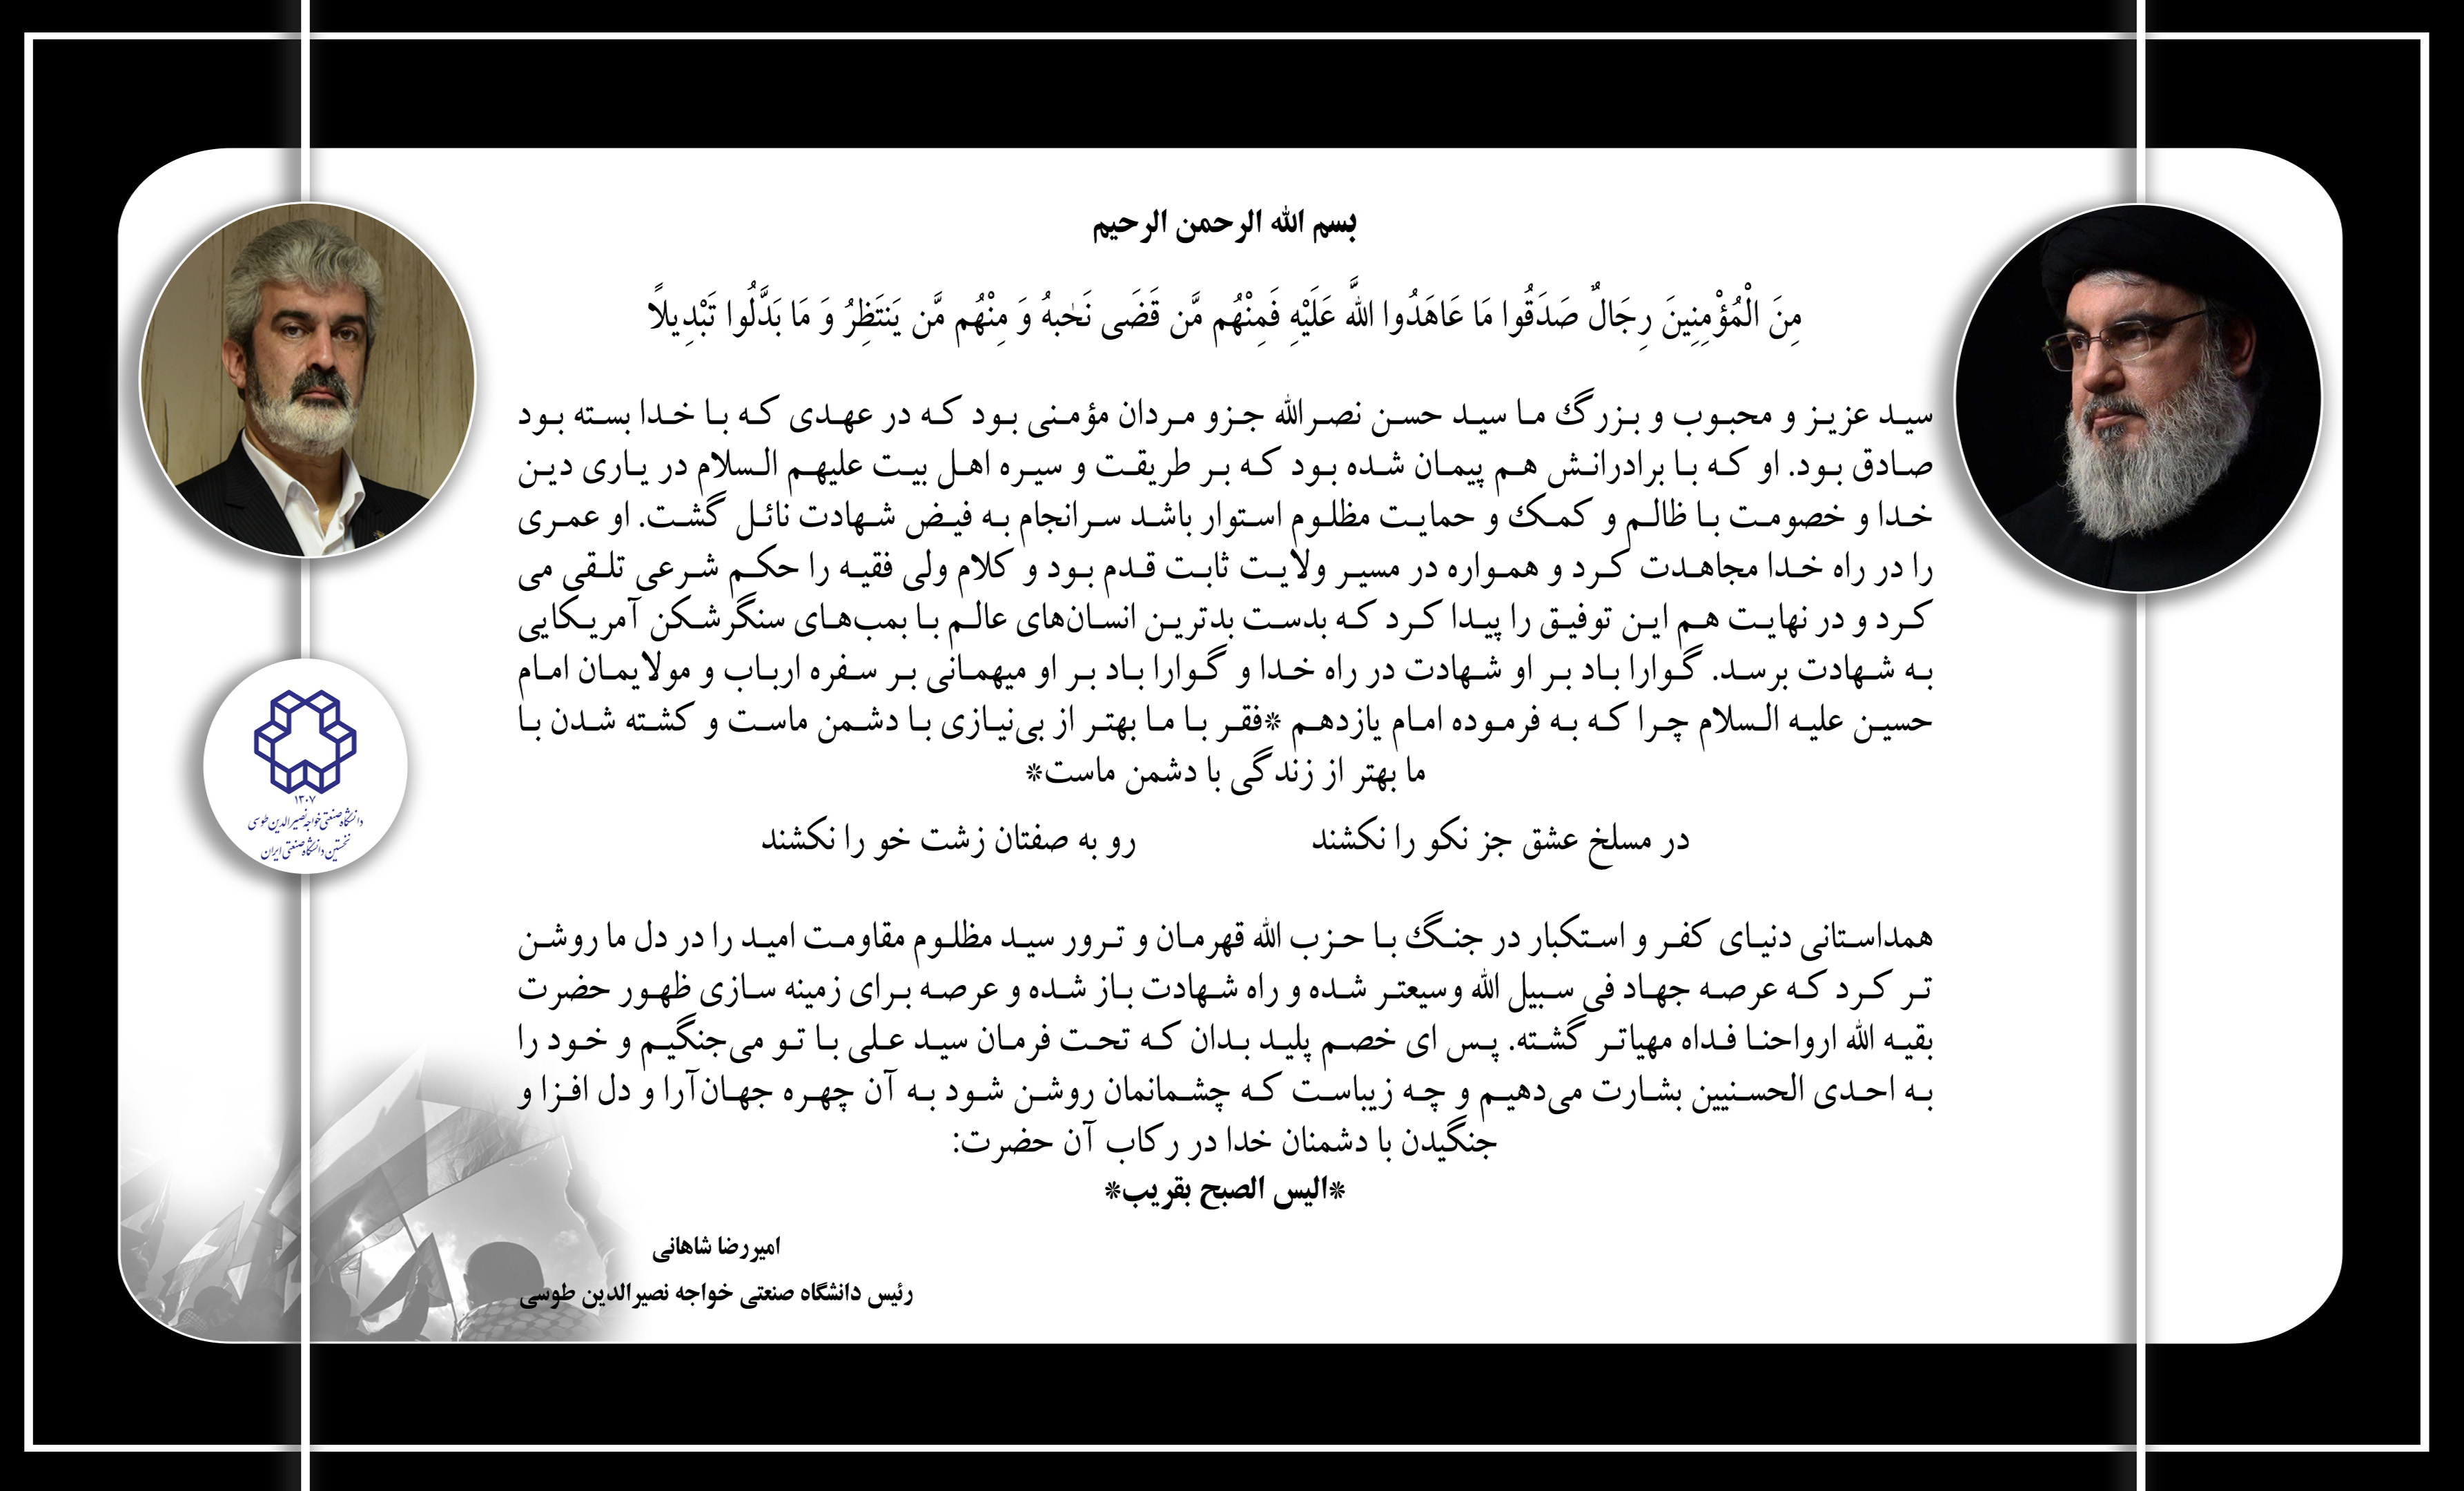 بسم الله الرحمن الرحیم
مِنَ الْمُؤْمِنِینَ رِجَالٌ صَدَقُوا مَا عَاهَدُوا اللَّه عَلَیْهِ فَمِنْهُم مَّن قَضَى نَحْبهُ وَ مِنْهُم مَّن یَنتَظِرُ وَ مَا بَدَّلُوا تَبْدِیلًا
سید عزیز و محبوب و بزرگ ما سید حسن نصرالله جزو مردان مؤمنی بود که در عهدی که با خدا بسته بود
صادق بود. او که با برادرانش هم پیمان شده بود که بر طریقت و سیره اهل بیت علیهم السلام در یاری دین
خدا و خصومت با ظالم و کمک و حمایت مظلوم استوار باشد سرانجام به فیض شهادت نائل گشت. او عمری
را در راه خدا مجاهدت کرد و همواره در مسیر ولایت ثابت قدم بود و کلام ولی فقیه را حکم شرعی تلقی می
کرد و در نهایت هم این توفیق را پیدا کرد که بدست بدترین انسان‌های عالم با بمب‌های سنگرشکن آمریکایی
به شهادت برسد. گوارا باد بر او شهادت در راه خدا و گوارا باد بر او میهمانی بر سفره ارباب و مولایمان امام
حسین علیه السلام چرا که به فرموده امام یازدهم *فقر با ما بهتر از بی‌نیازی با دشمن ماست و کشته شدن با
ما بهتر از زندگی با دشمن ماست*
در مسلخ عشق جز نکو را نکشند رو به صفتان زشت خو را نکشند
همداستانی دنیای کفر و استکبار در جنگ با حزب الله قهرمان و ترور سید مظلوم مقاومت امید را در دل ما روشن
تر کرد که عرصه جهاد فی سبیل الله وسیعتر شده و راه شهادت باز شده و عرصه برای زمینه سازی ظهور حضرت
بقیه الله ارواحنا فداه مهیاتر گشته. پس ای خصم پلید بدان که تحت فرمان سید علی با تو می‌جنگیم و خود را
به احدی الحسنیین بشارت می‌دهیم و چه زیباست که چشمانمان روشن شود به آن چهره جهان‌آرا و دل افزا و
جنگیدن با دشمنان خدا در رکاب آن حضرت:
*الیس الصبح بقریب*
امیررضا شاهانی
رئیس دانشگاه صنعتی خواجه نصیرالدین طوسی
۱۳۰۷
دانشگاه صنعتی خواجه نصیرالدین طوسی
نخستین دانشگاه صنعتی ایران